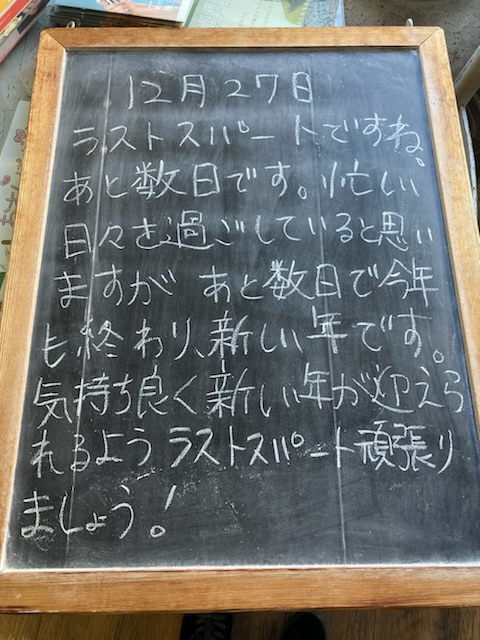 12月27日
ラストスパートですね。
あと数日です。忙しい
日々を過ごしていると思い
ますが あと数日で今年
も終わり、新しい年です。
気持ち良く新しい年が迎えら
れるよう ラストスパート頑張り
ましょう!